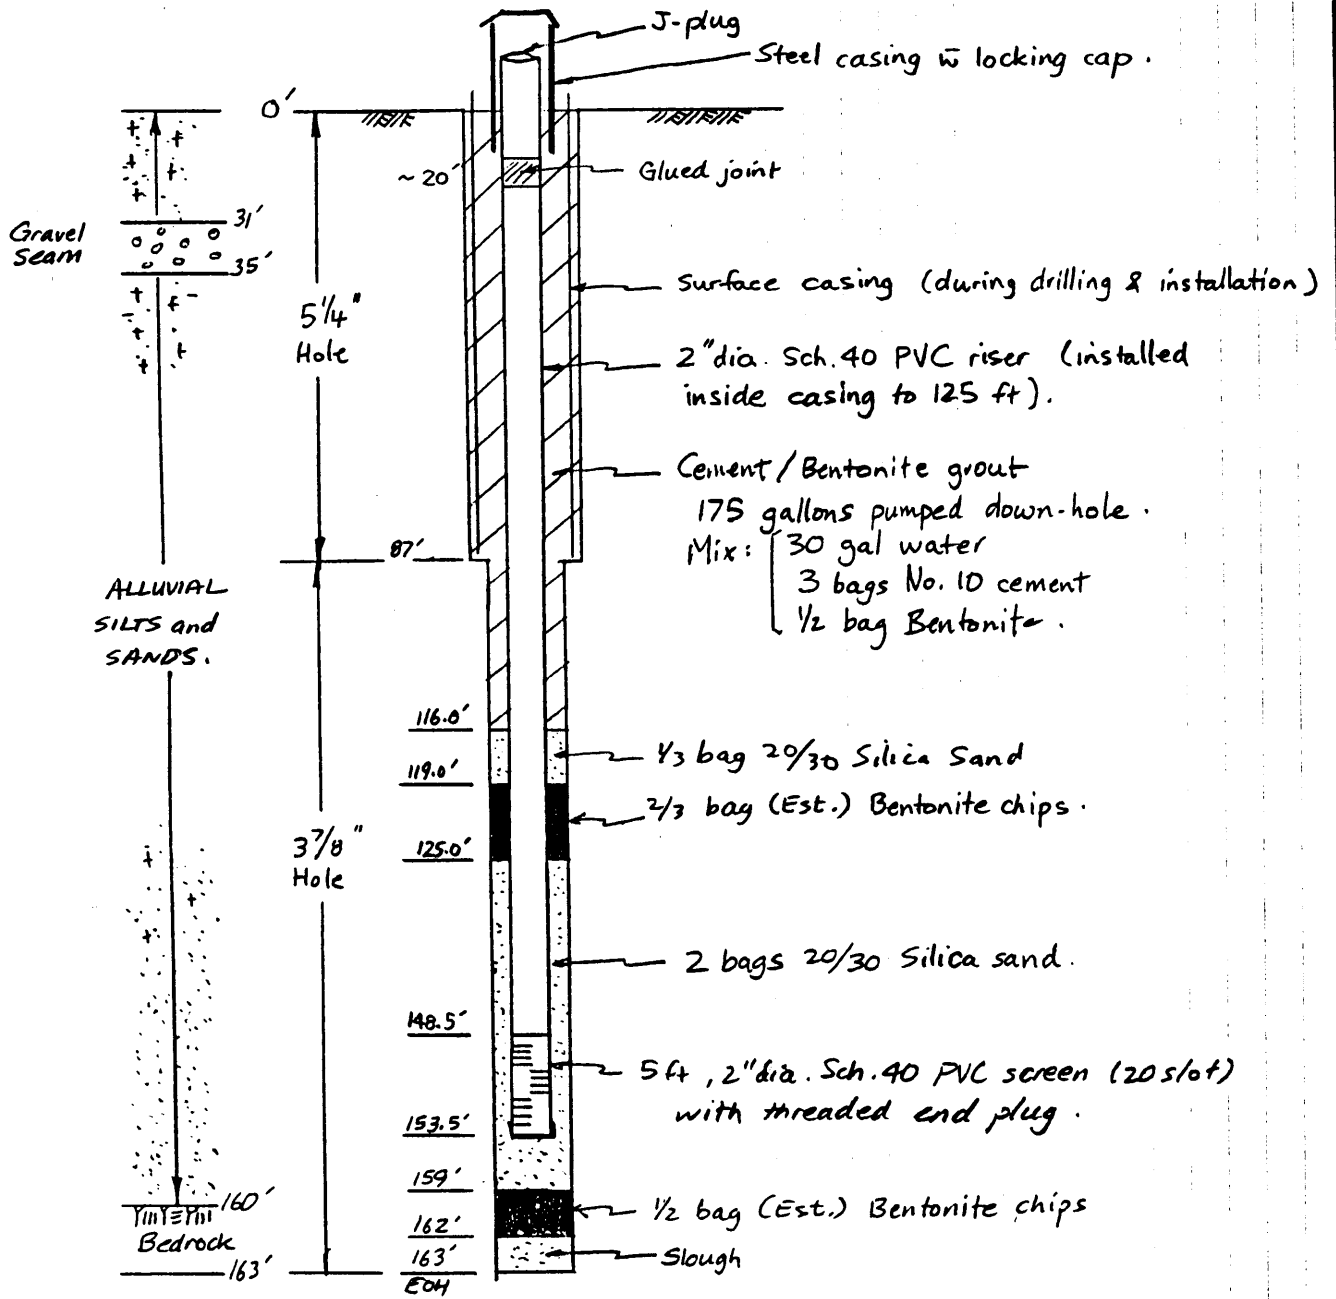 J-plug
Steel casing w̄ locking cap.
0'
~20'
Glued joint
31'
Gravel
Seam
35'
Surface casing (during drilling & installation)
5 1/4"
Hole
2" dia. Sch. 40 PVC riser (installed
inside casing to 125 ft).
Cement/Bentonite grout
175 gallons pumped down-hole.
Mix: 30 gal water
3 bags No. 10 cement
1/2 bag Bentonite.
87'
ALLUVIAL
SILTS and
SANDS.
116.0'
1/3 bag 20/30 Silica Sand
119.0'
2/3 bag (Est.) Bentonite chips.
125.0'
3 7/8"
Hole
2 bags 20/30 Silica sand.
148.5'
5 ft, 2" dia. Sch. 40 PVC screen (20 slot)
with threaded end plug.
153.5'
159'
160'
1/2 bag (Est.) Bentonite chips
162'
Bedrock
163'
163'
Slough
EOH